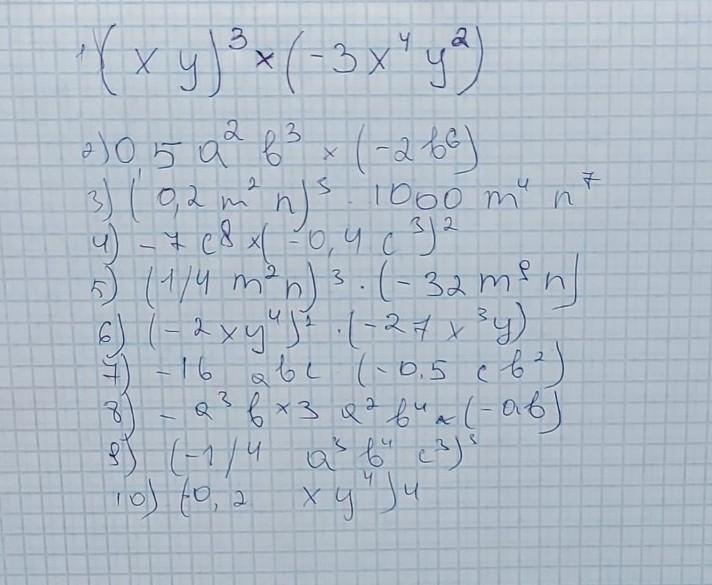 1) (xy)³ × (-3x⁴y²)
2) 0,5 a² b³ × (-2b⁶)
3) (0,2 m² n)⁵ · 1000 m⁴ n⁷
4) -7 c8 × (-0,4 c³)²
5) (1/4 m²n)³ · (-32 m⁹ n)
6) (-2xy⁴)² · (-27x³y)
7) -16 abc · (-0.5 cb²)
8) -a³ b × 3 a² b⁴ × (-ab)
9) (-1/4 a³ b⁴ c³)³
10) (-0,2 xy⁴)4